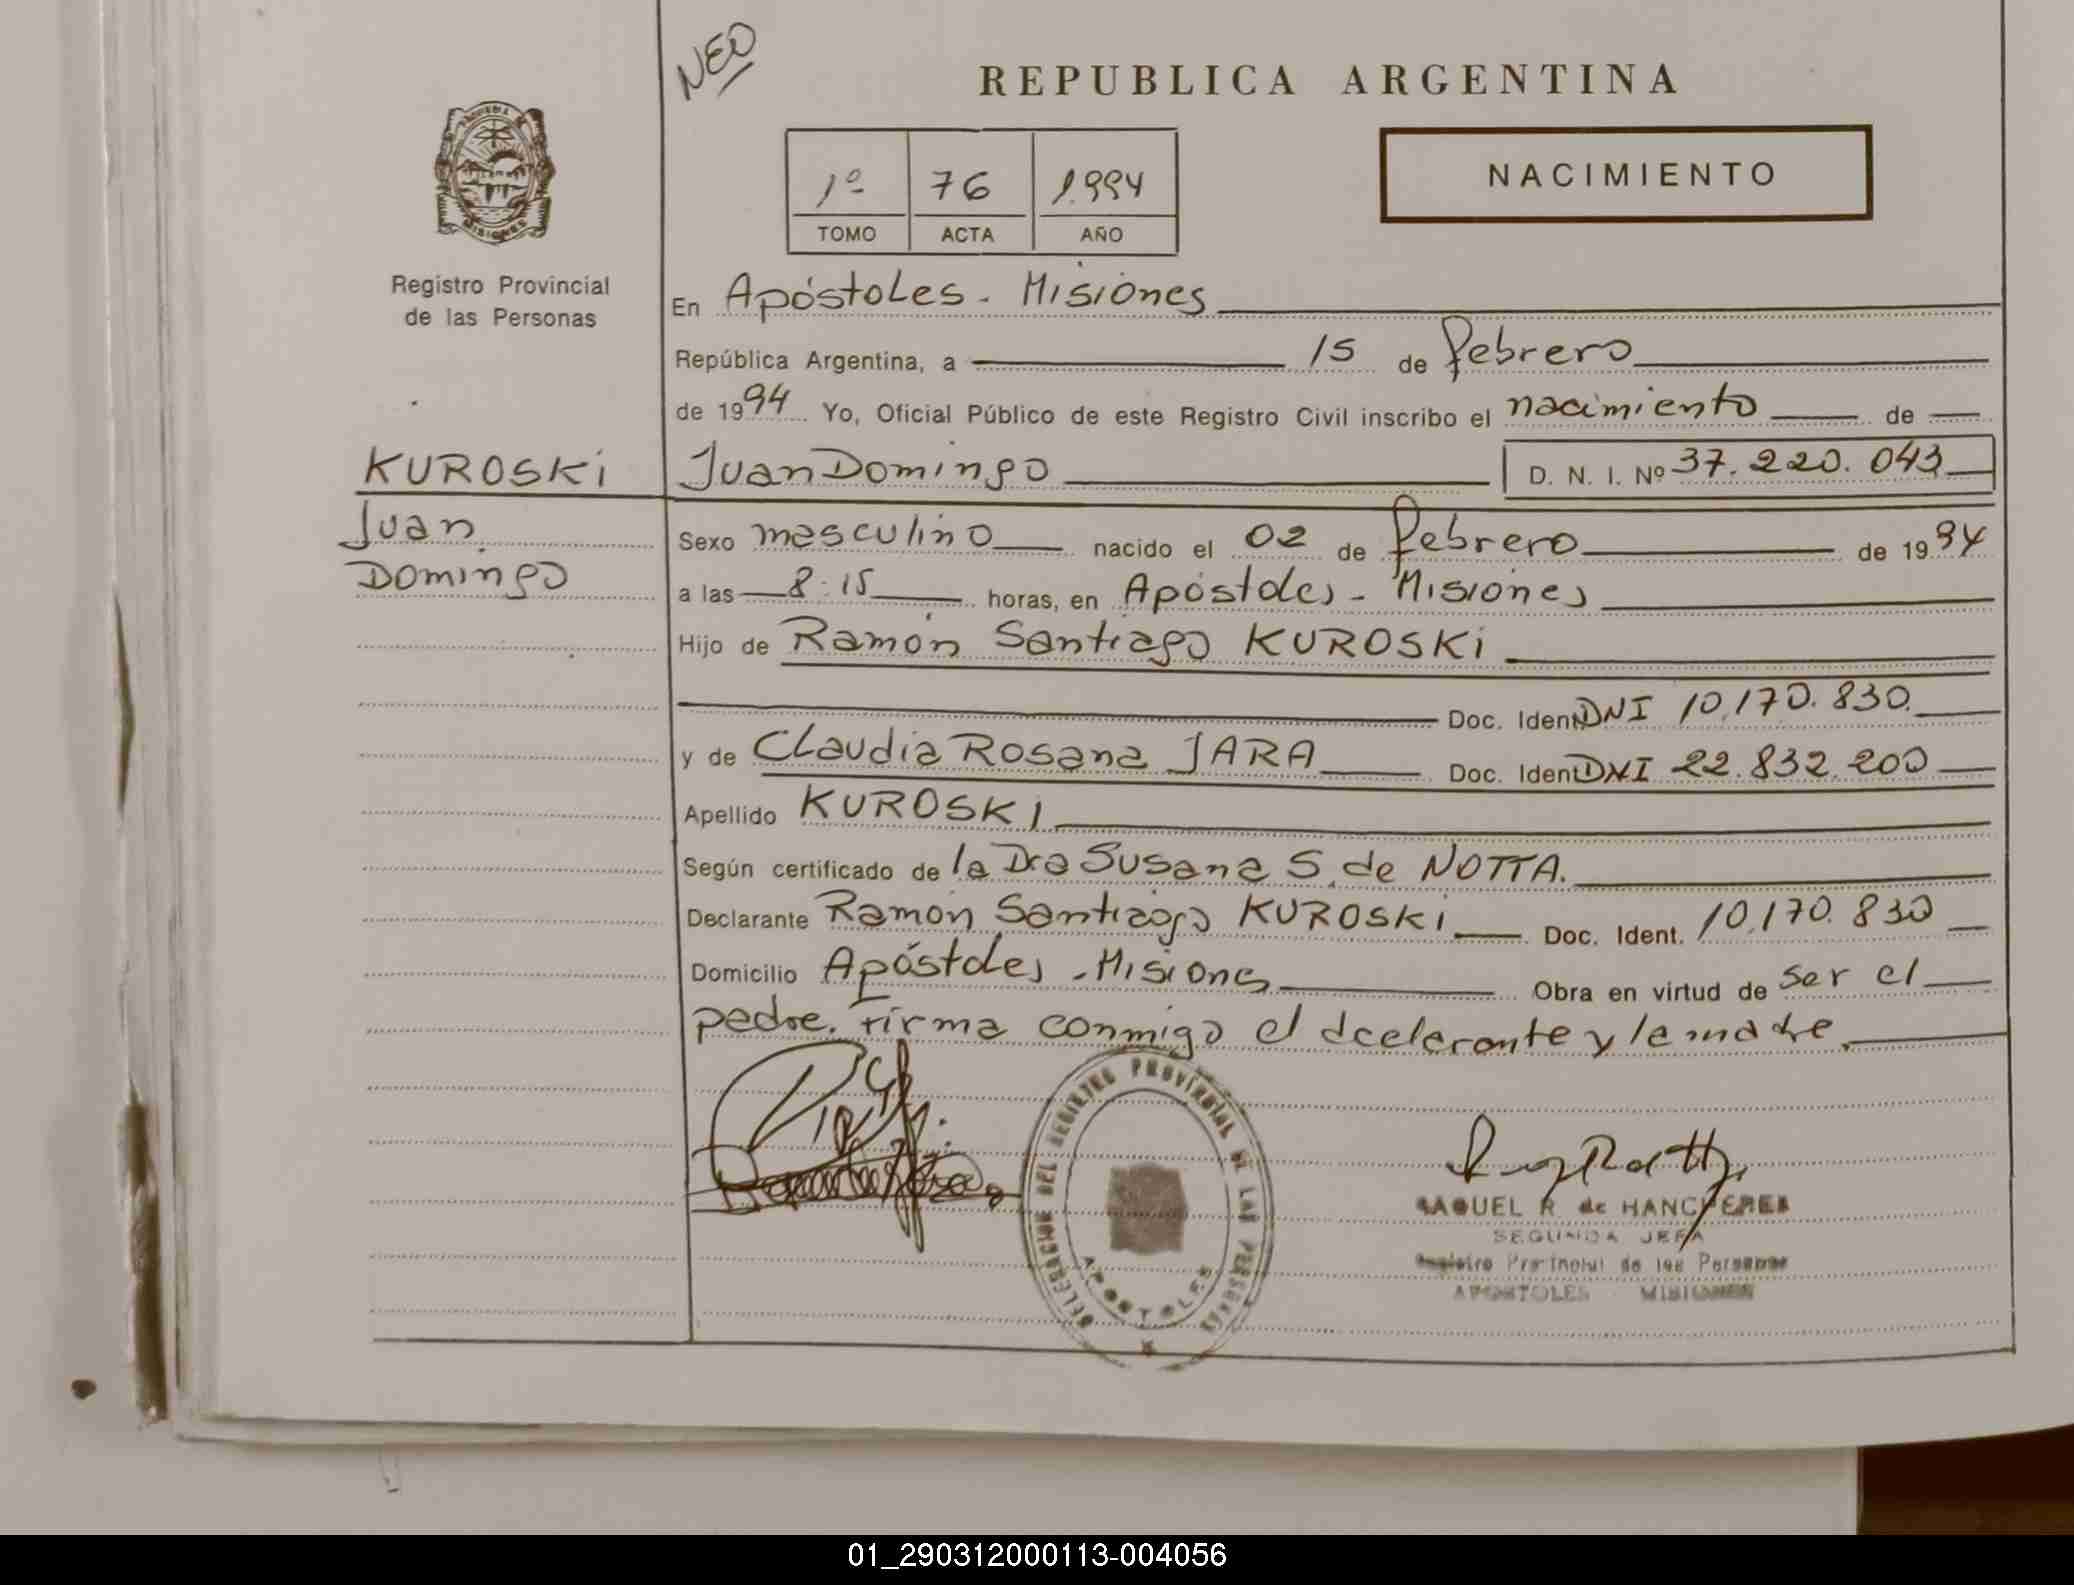 NEO
REPUBLICA ARGENTINA
1º 76 1.994
TOMO ACTA AÑO
NACIMIENTO
MISIONES
Registro Provincial
de las Personas
KUROSKi
Juan
Domingo
En Apóstoles - Misiones
República Argentina, a 15 de febrero
de 1994 Yo, Oficial Público de este Registro Civil inscribo el nacimiento de
Juan Domingo D. N. I. Nº 37.220.043
Sexo masculino nacido el 02 de febrero de 1994
a las 8:15 horas, en Apóstoles - Misiones
Hijo de Ramón Santiago KUROSKi
Doc. Ident. DNI 10.170.830.
y de Claudia Rosana JARA Doc. Ident. DNI 22.832.200
Apellido KUROSKi
Según certificado de la Dra Susana S. de NOTTA.
Declarante Ramón Santiago KUROSKi Doc. Ident. 10.170.830
Domicilio Apóstoles - Misiones Obra en virtud de ser el
padre. Firma conmigo el declarante y la madre.
DELEGACION DEL REGISTRO PROVINCIAL DE LAS PERSONAS
APOSTOLES
RAQUEL R. de HANCHEREK
SEGUNDA JEFA
Registro Provincial de las Personas
APOSTOLES MISIONES
01_290312000113-004056